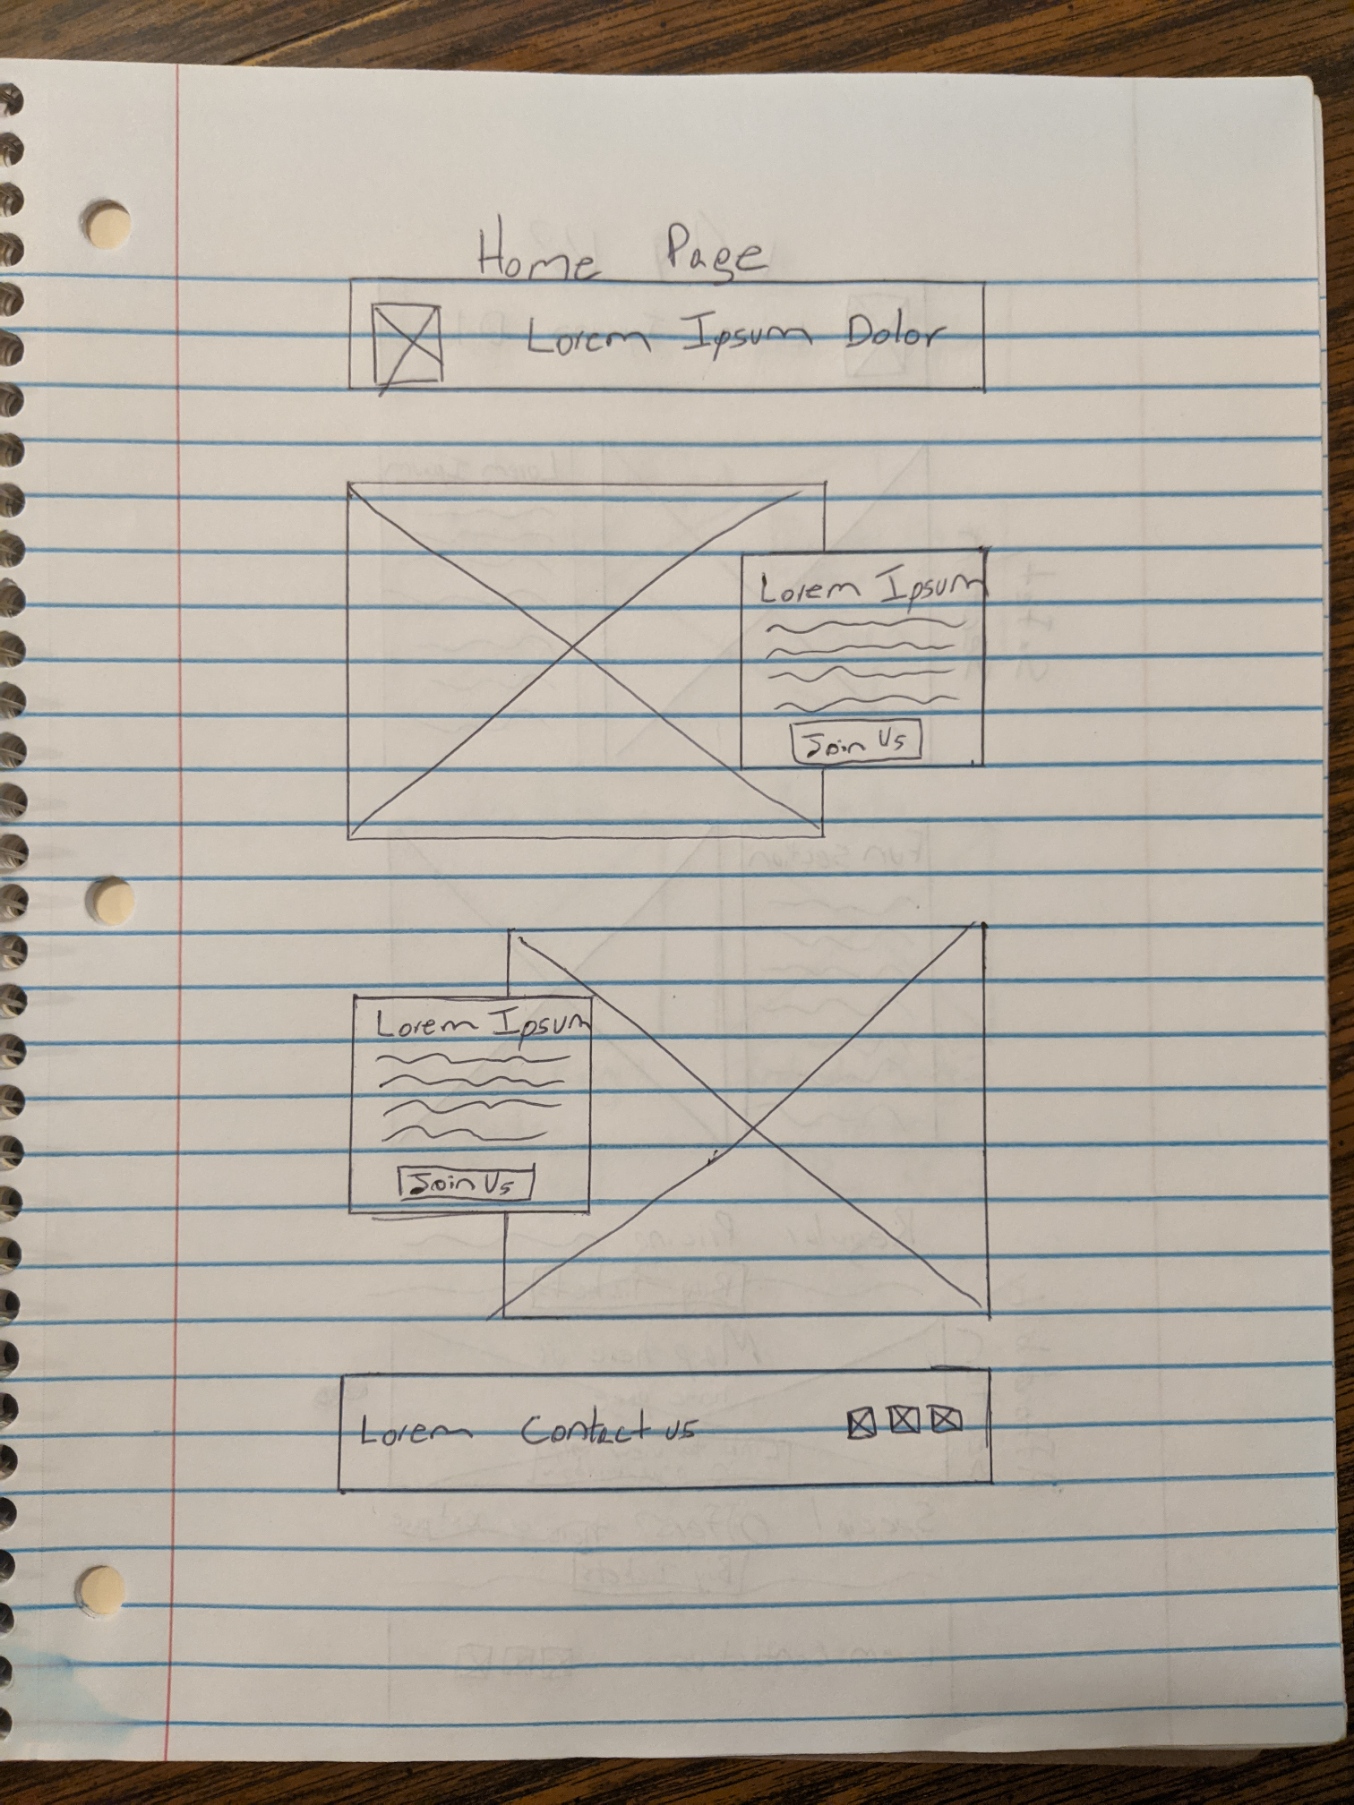 Home Page
Lorem Ipsum Dolor
Lorem Ipsum
Join Us
Lorem Ipsum
Join Us
Lorem Contact us